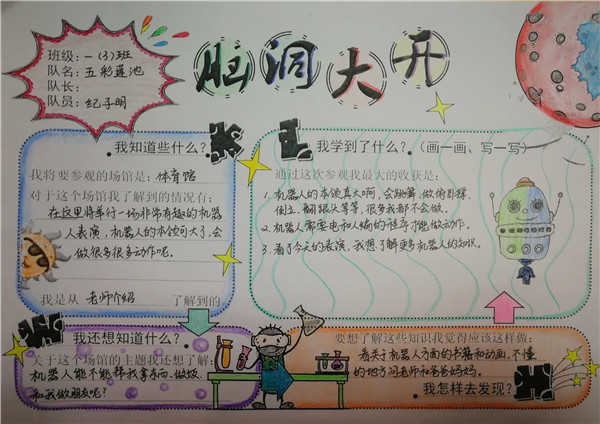 脑洞大开
班级：一（3）班
队名：五彩莲池
队长：
队员：纪子明
我知道些什么？
我将要参观的场馆是：体育馆
对于这个场馆我了解到的情况有：
在这里将举行一场非常有趣的机器
人表演，机器人的本领可大了，会
做很多很多动作呢。
我是从 老师介绍 了解到的
我学到了什么？（画一画、写一写）
通过这次参观我最大的收获是：
1. 机器人的本领真大啊，会跳舞、做俯卧撑、
倒立、翻跟头等等，很多我都不会做。
2. 机器人需要电和人编的程序才能做动作。
3. 看了今天的表演，我想了解更多机器人的知识。
我还想知道什么？
关于这个场馆的主题我还想了解：
机器人能不能帮我拿东西、做饭、
和我做朋友呢？
要想了解这些知识我觉得应该这样做：
看关于机器人方面的书籍和动画，不懂
的地方问老师和爸爸妈妈。
我怎样去发现？